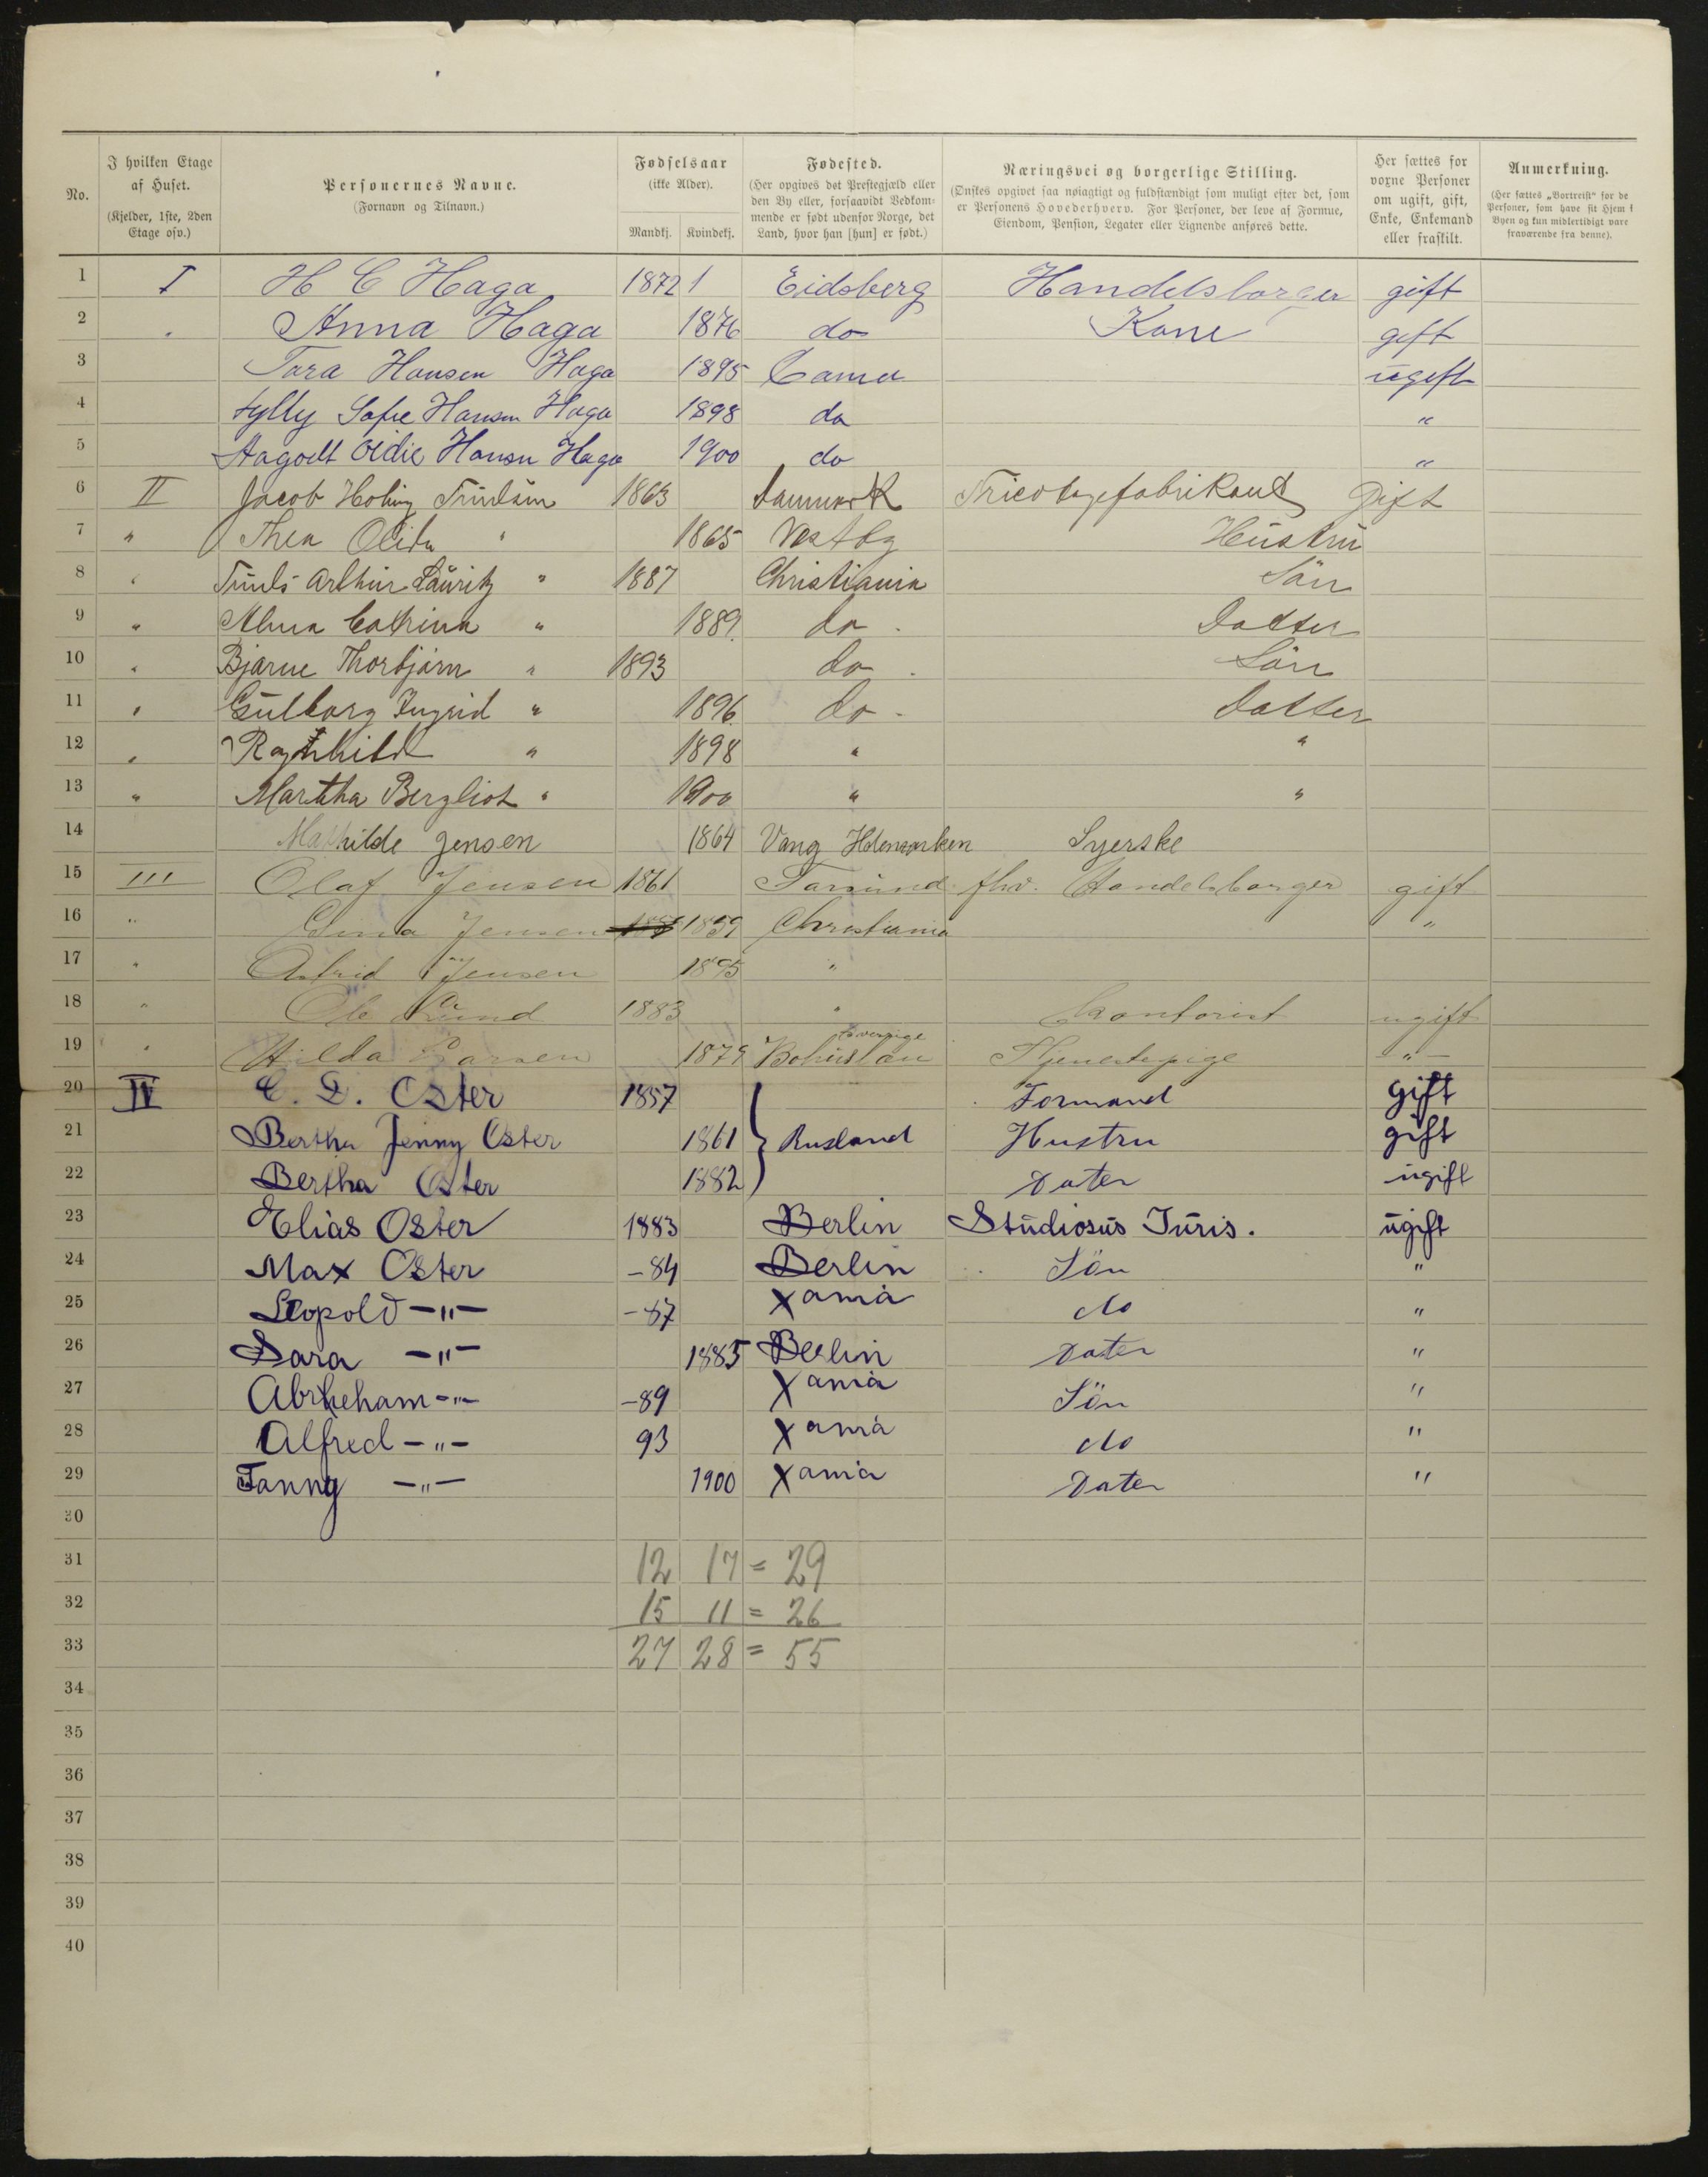 No. | I hvilken Etage af Huset. (Kjelder, 1ste, 2den Etage osv.) | Personernes Navne. (Fornavn og Tilnavn.) | Fødselsaar (ikke Alder). Mandkj. Kvindekj. | Fødested. (Her opgives det Prestegjæld eller den By eller, forsaavidt Vedkommende er født udenfor Norge, det Land, hvor han [hun] er født.) | Næringsvei og borgerlige Stilling. (Ønskes opgivet saa nøiagtigt og fuldstændigt som muligt efter det, som er Personens Hovederhverv. For Personer, der leve af Formue, Eiendom, Pension, Legater eller Lignende anføres dette.) | Her sættes for voxne Personer om ugift, gift, Enke, Enkemand eller fraskilt. | Anmerkning. (Her sættes „Bortreist" for de Personer, som have sit Hjem i Byen og kun midlertidigt vare fraværende fra denne).
1 I H C Haga 1872 1 Eidsberg Handelsborger gift
2 " Anna Haga 1876 do Kone gift
3 Tora Hansen Haga 1895 ugift
4 Sofie Hansen Haga 1898 do "
5 Hansen Haga 1900 do "
6 II Jacob Danmark Tricotagefabrikant Gift 1863
7 " Thea Olida " 1865 Vestby Hüstrü
8 " Trüls Arthür Laüritz " 1887 Christiania Sön
9 " Alma Cathrina " 1889 do. Datter
10 " Bjarne Thorbjørn " 1893 do. Sön
11 " Gülborg Ingrid " 1896 do. Datter
12 " Ragnhild " 1898 " "
13 " Martha Bergliot " 1900 " "
14 Mathilde Jensen 1864 Vang Hdemarken Syerske
15 III Olaf Jensen 1861 Farsund fhv. Handelsborger gift
16 " Jensen 1859 Christiania "
17 " Astrid Jensen 1895 "
18 " Ole Lund 1883 " Kontorist ugift
19 " Hilda Larsen 1879 Bohüslän Tjenestepige -"-
20 IV C. D. Oster 1857 } Formand gift
21 Bertha Jenny Oster 1861 } Rusland Hustru gift
22 Bertha Oster 1882 } Dater ugift
23 Elias Oster 1883 Berlin Stüdiosüs Jüris. ügift
24 Max Oster -84 Berlin Sön "
25 Leopold -"- -87 Xania do "
26 Sara -"- 1885 Berlin Dater "
27 Abraheham -"- -89 Xania Sön "
28 Alfred -"- 93 Xania do "
29 Fanny -"- 1900 Xania Dater "
30
31 12 17 = 29
32 15 11 = 26
33 27 28 = 55
34
35
36
37
38
39
40